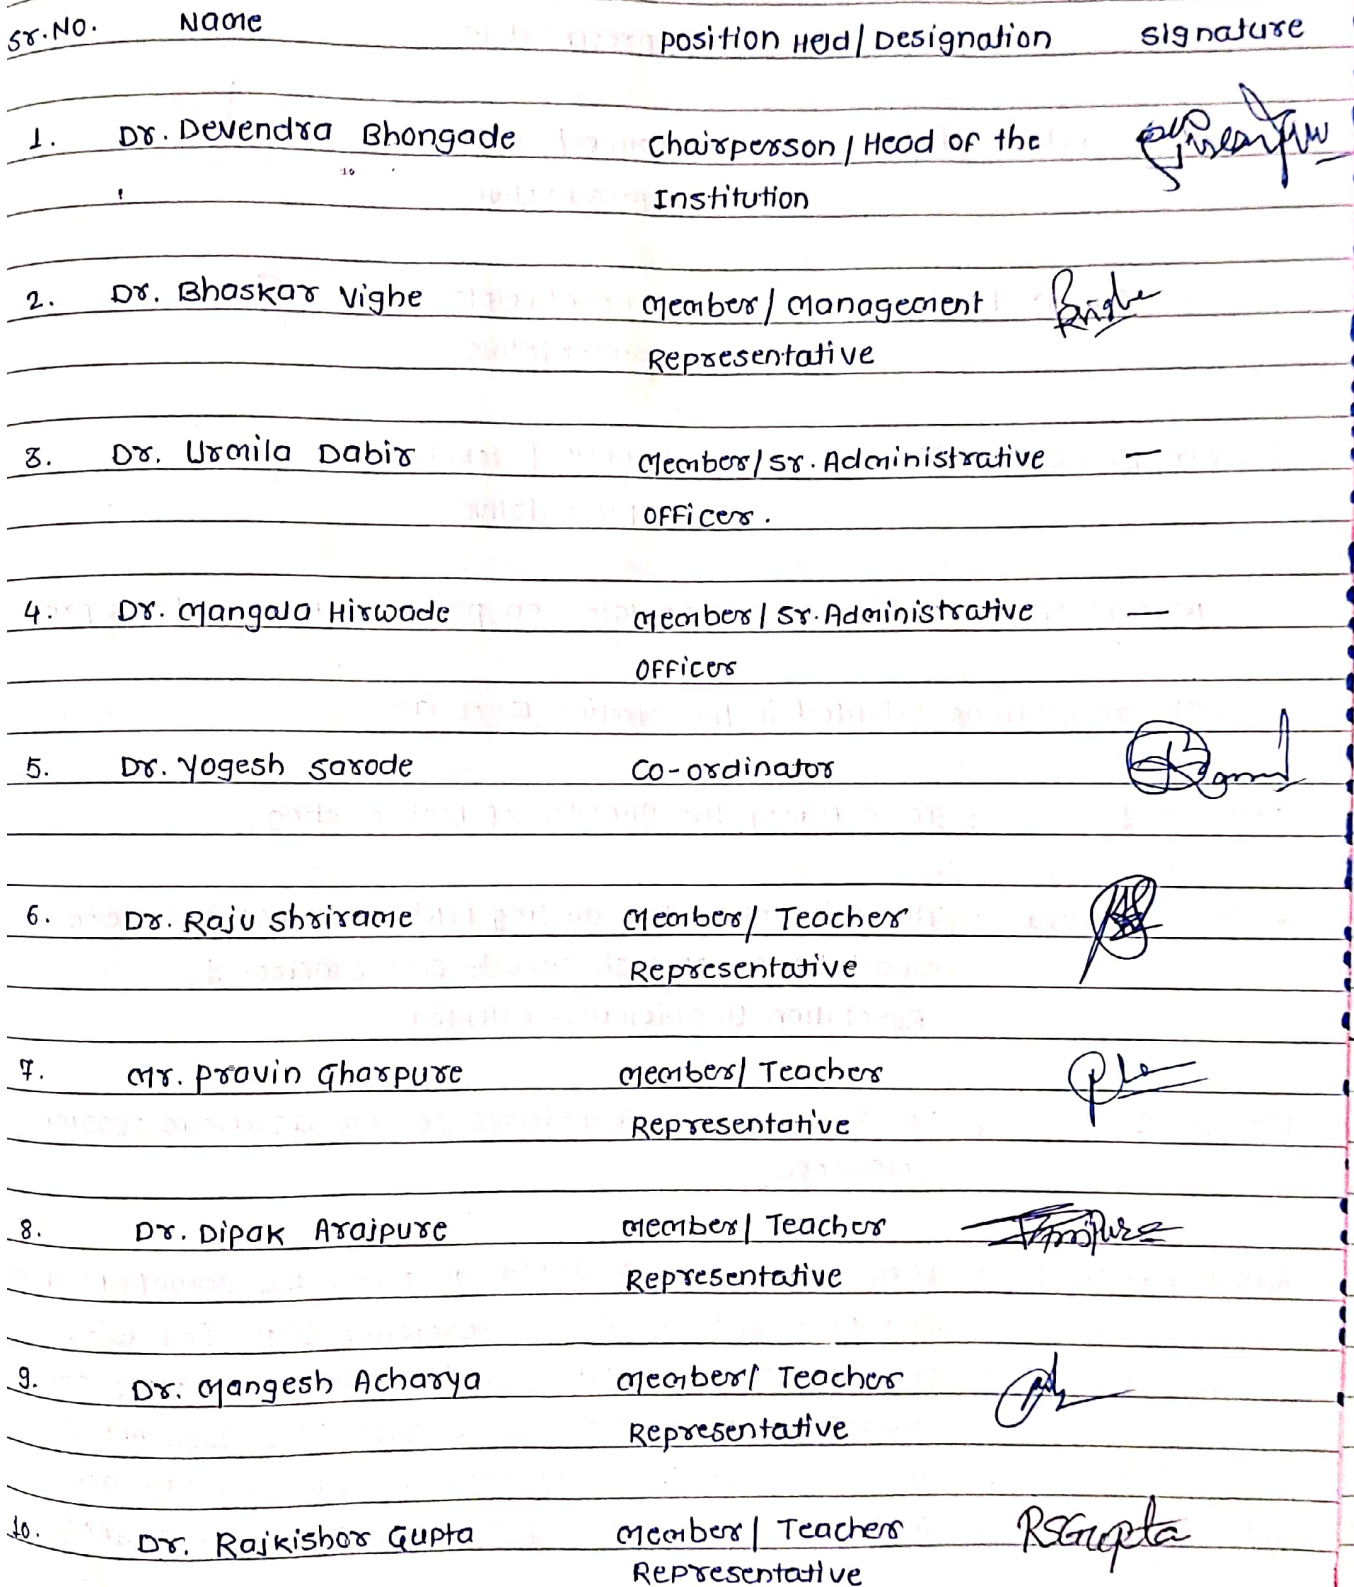 Sr.No. Name Position Held/Designation Signature
1. Dr. Devendra Bhongade Chairperson/Head of the
Institution
2. Dr. Bhaskar Vighe Member/Management
Representative
3. Dr. Urmila Dabir Member/Sr. Administrative —
Officer.
4. Dr. Mangala Hirwade Member/Sr. Administrative —
Officer
5. Dr. Yogesh Sarode Co-ordinator
6. Dr. Raju Shrirame Member/Teacher
Representative
7. Mr. Pravin Gharpure Member/Teacher
Representative
8. Dr. Dipak Arajpure Member/Teacher
Representative
9. Dr. Mangesh Acharya Member/Teacher
Representative
10. Dr. Rajkishor Gupta Member/Teacher RSGupta
Representative